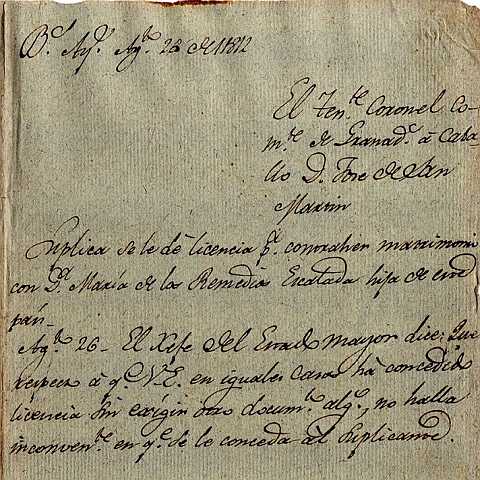 B.s Ay.s Ag.to 26 de 1812
El Ten.te Coronel Co-
m.te de Granad.s à Caba-
llo D. Jose de San
Martin
Suplica se le dè licencia p.a contraher matrimonio
con D.a María de los Remedios Escalada hija de este
pais.
Ag.to 26 - El Xefe del Estado mayor dice: Que
respecto à q.e V.E. en iguales casos hà concedido
licencia sin exigir otro docum.to alg.o, no halla
inconven.te en q.e se le conceda al suplicante.